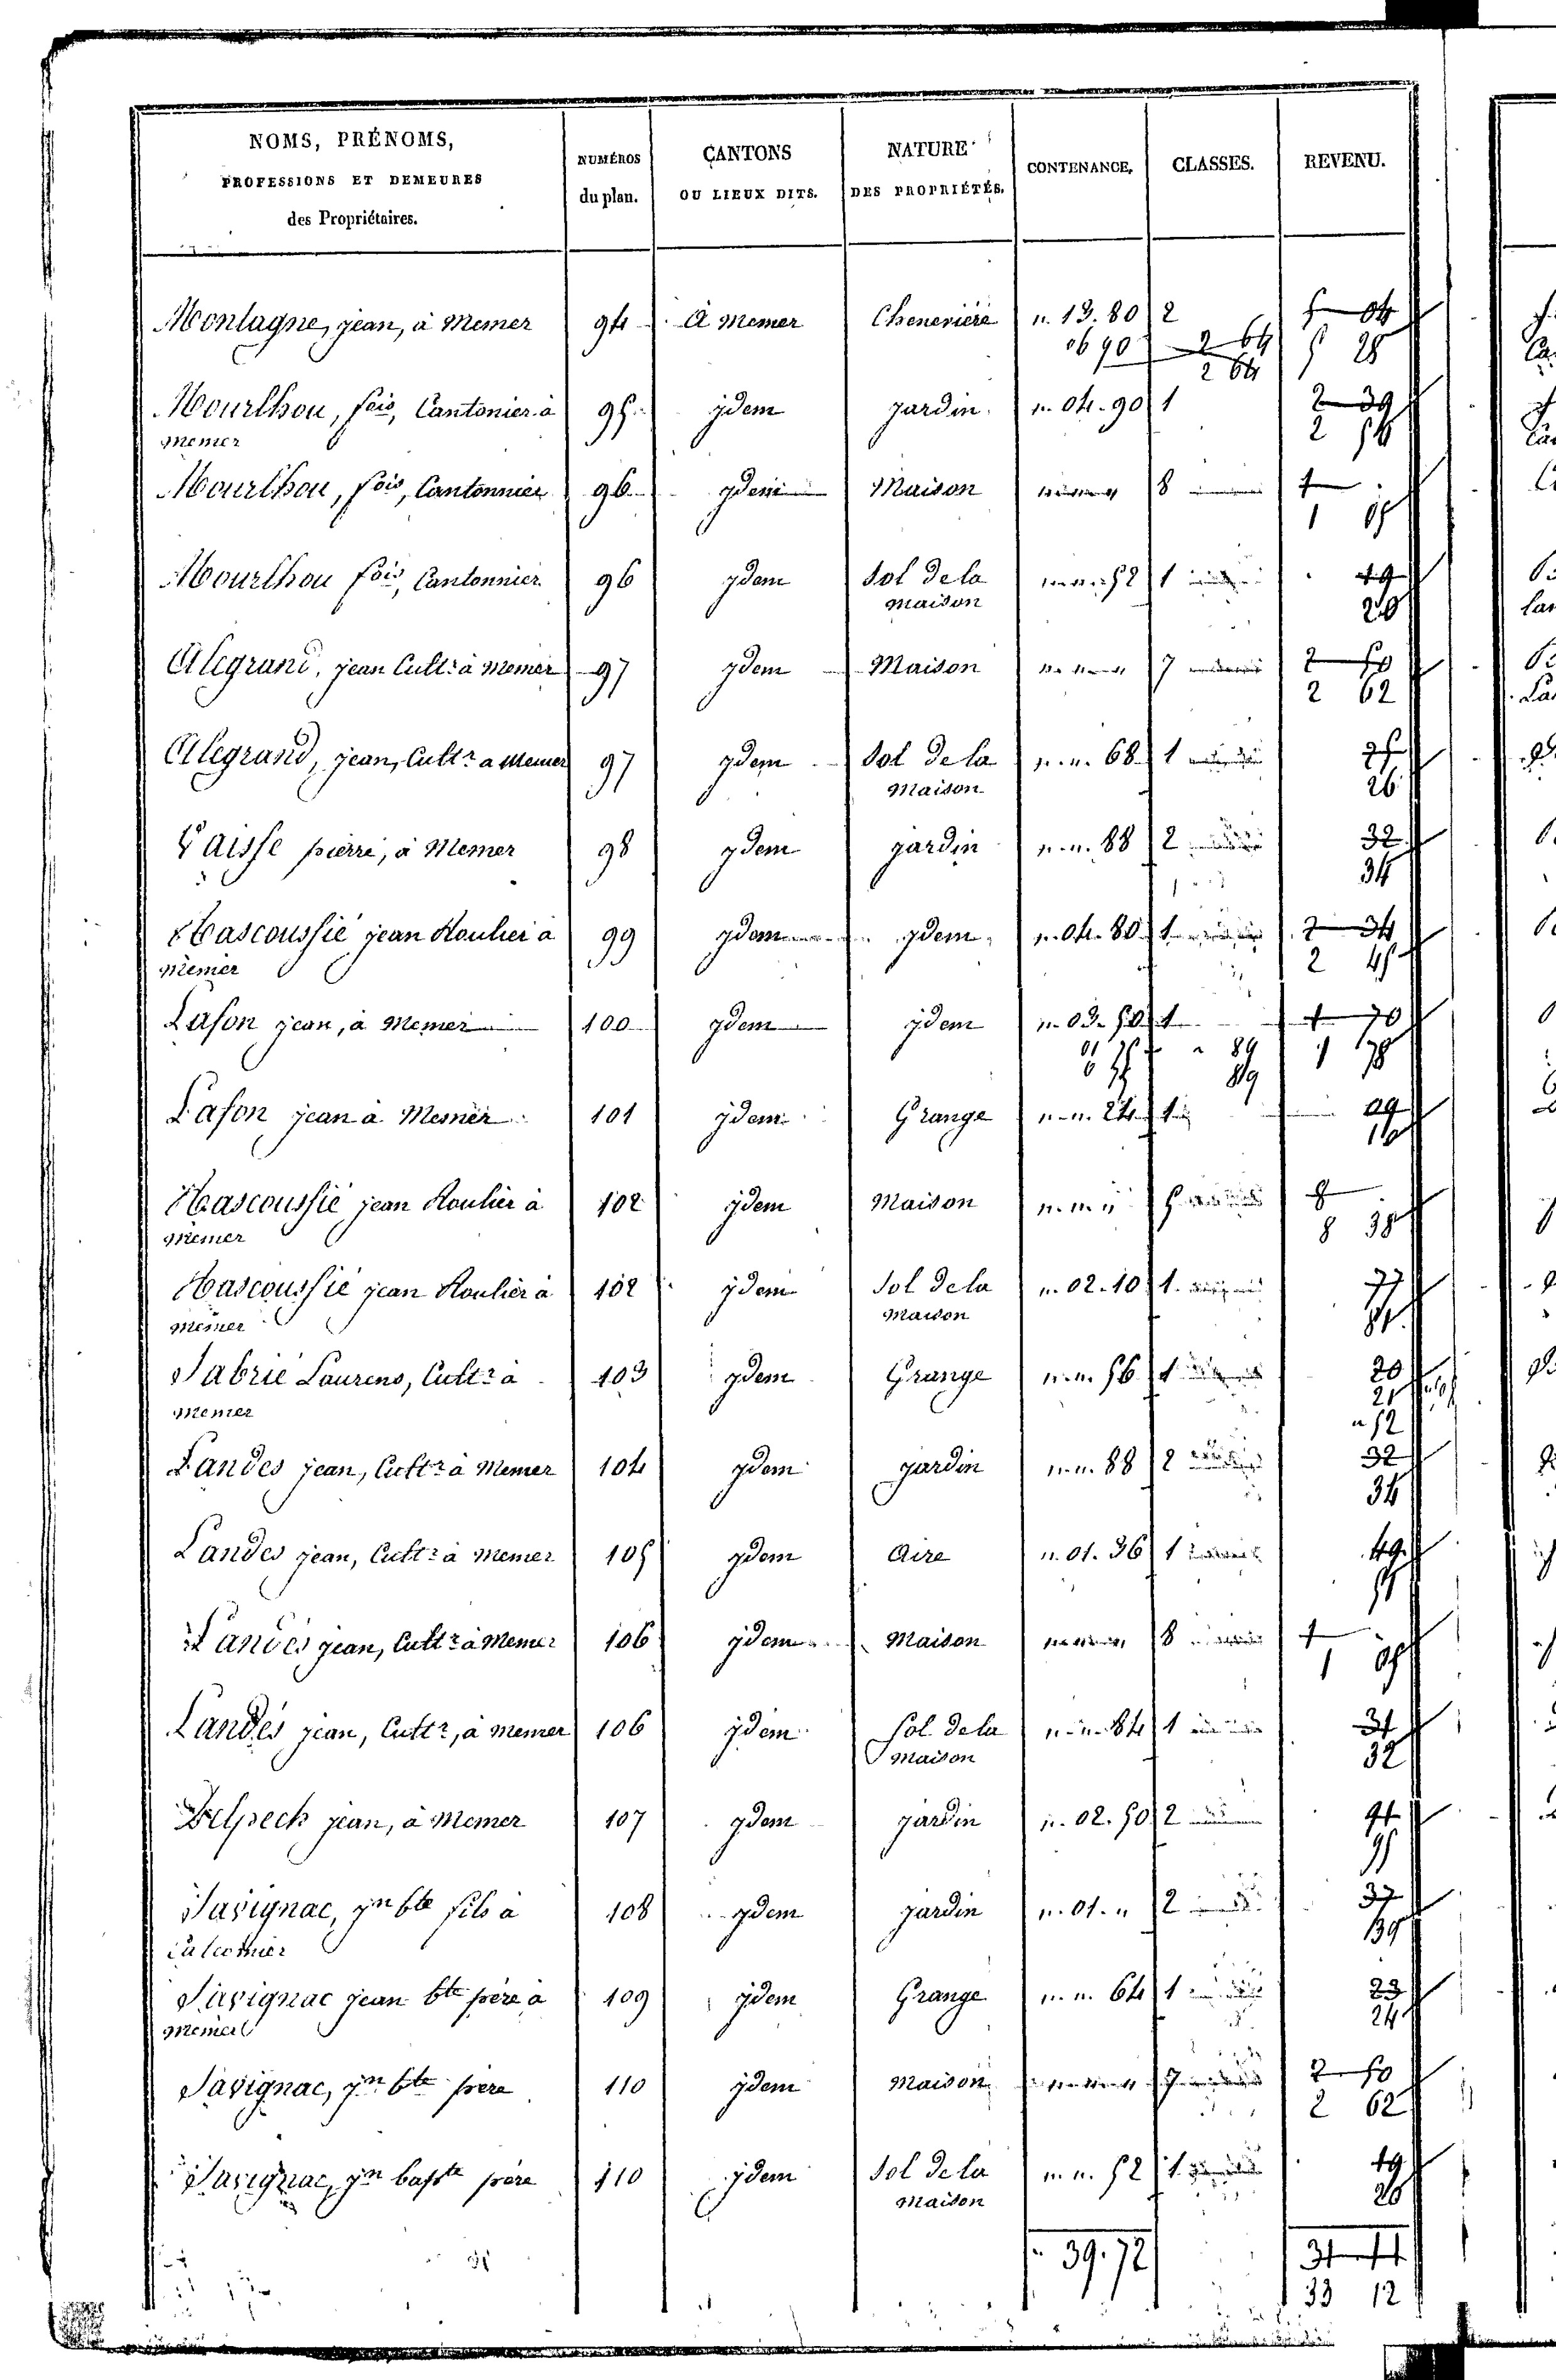 NOMS, PRÉNOMS,
PROFESSIONS ET DEMEURES
des Propriétaires.
NUMÉROS
du plan.
CANTONS
OU LIEUX DITS.
NATURE
DES PROPRIÉTÉS.
CONTENANCE.
CLASSES.
REVENU.
Montagne, jean, à Memer 94 à Memer Cheneviere „ 13. 80 2 5 04
06 90 2 64 5 28
2 64
Mourlhou, fois, Cantonier à 95 ydem jardin „ 04. 90 1 2 39
memer 2 51
Mourlhou, fois, Cantonnier 96 ydem Maison „ „ „ 8 1
1 05
Mourlhou fois, Cantonnier 96 ydem Sol de la „ „ 52 1 19
maison 20
Alegrand, jean Cultr à Memer 97 ydem Maison „ „ „ 7 2 50
2 62
Alegrand, jean, Cultr a Memer 97 ydem Sol de la „ „ 68 1 25
maison 26
Vaisse pierre, à Memer 98 ydem jardin „ „ 88 2 32
34
Mascoussié jean Roulier à 99 ydem ydem „ 04. 80 1 2 34
memer 2 45
Lafon jean, à Memer 100 ydem ydem „ 03. 50 1 1 70
01 75 „ 89 1 78
89
Lafon jean à Memer 101 ydem Grange „ „ 24 1 09
10
Mascoussié jean Roulier à 102 ydem Maison „ „ „ 5 8
memer 8 38
Mascoussié jean Roulier à 102 ydem Sol de la „ 02. 10 1 77
memer maison 81
Sabrié Laurens, Cultr à 103 ydem Grange „ „ 56 1 20
memer 21
„ 52
Landes jean, Cultr à Memer 104 ydem jardin „ „ 88 2 32
34
Landes jean, Cultr à Memer 105 ydem Aire „ 01. 36 1 49
51
Landes jean, Cultr à Memer 106 ydem Maison „ „ „ 8 1
1 05
Landes jean, Cultr, à Memer 106 ydem Sol de la „ „ 84 1 31
maison 32
Delpech jean, à Memer 107 ydem jardin „ 02. 50 2 91
95
Savignac, jn bte fils à 108 ydem jardin „ 01. „ 2 37
39
Savignac jean bte père à 109 ydem Grange „ „ 64 1 23
memer 24
Savignac, jn bte père 110 ydem maison „ „ „ 7 2 50
2 62
Savignac, jn bapte père 110 ydem Sol de la „ „ 52 1 19
maison 20
„ 39. 72
33 12